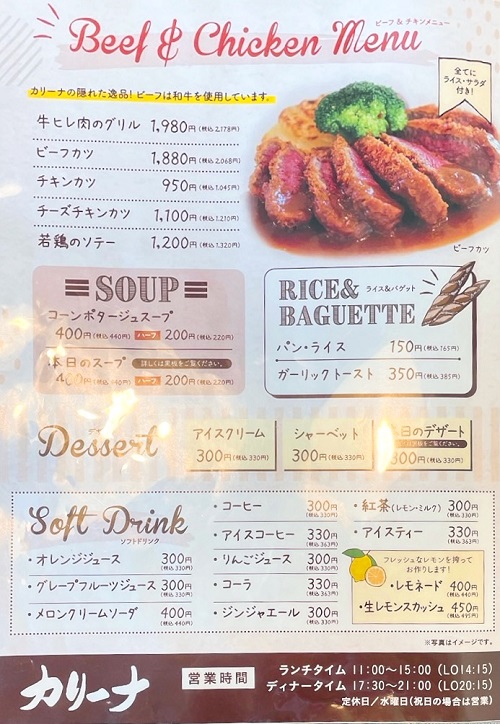 Beef & Chicken Menu
ビーフ & チキンメニュー
全てに
ライス・サラダ
付き!
カリーナの隠れた逸品! ビーフは和牛を使用しています。
牛ヒレ肉のグリル 1,980円(税込2,178円)
ビーフカツ 1,880円(税込2,068円)
チキンカツ 950円(税込1,045円)
チーズチキンカツ 1,100円(税込1,210円)
若鶏のソテー 1,200円(税込1,320円)
ビーフカツ
SOUP
コーンポタージュスープ
400円(税込440円) ハーフ 200円(税込220円)
本日のスープ 詳しくは黒板をご覧ください。
400円(税込440円) ハーフ 200円(税込220円)
RICE& ライス&バゲット
BAGUETTE
パン・ライス 150円(税込165円)
ガーリックトースト 350円(税込385円)
Dessert
アイスクリーム
300円(税込330円)
シャーベット
300円(税込330円)
本日のデザート
300円(税込330円)
Soft Drink
ソフトドリンク
・オレンジジュース 300円(税込330円)
・グレープフルーツジュース 300円(税込330円)
・メロンクリームソーダ 400円(税込440円)
・コーヒー 300円(税込330円)
・アイスコーヒー 330円(税込363円)
・りんごジュース 300円(税込330円)
・コーラ 330円(税込363円)
・ジンジャエール 300円(税込330円)
・紅茶(レモン・ミルク) 300円(税込330円)
・アイスティー 330円(税込363円)
フレッシュなレモンを搾って
お作りします!
・レモネード 400円(税込440円)
・生レモンスカッシュ 450円(税込495円)
※写真はイメージです。
カリーナ
営業時間
ランチタイム 11:00〜15:00(LO14:15)
ディナータイム 17:30〜21:00(LO20:15)
定休日/水曜日(祝日の場合は営業)